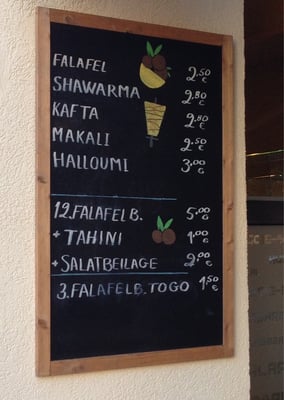 FALAFEL 2.50 €
SHAWARMA 2.80 €
KAFTA 2.80 €
MAKALI 2.50 €
HALLOUMI 3.00 €
12.FALAFELB. 5.00 €
+ TAHINI 1.00 €
+ SALATBEILAGE 2.00 €
3.FALAFELB.TOGO 1.50 €